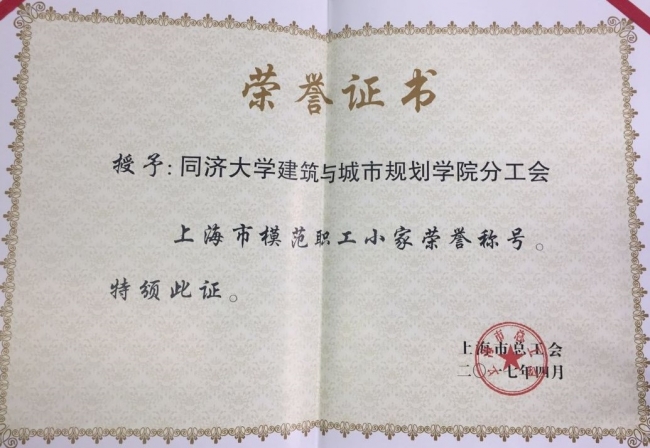 荣誉证书
授予:同济大学建筑与城市规划学院分工会
上海市模范职工小家荣誉称号。
特颁此证。
上海市总工会
二〇一七年四月